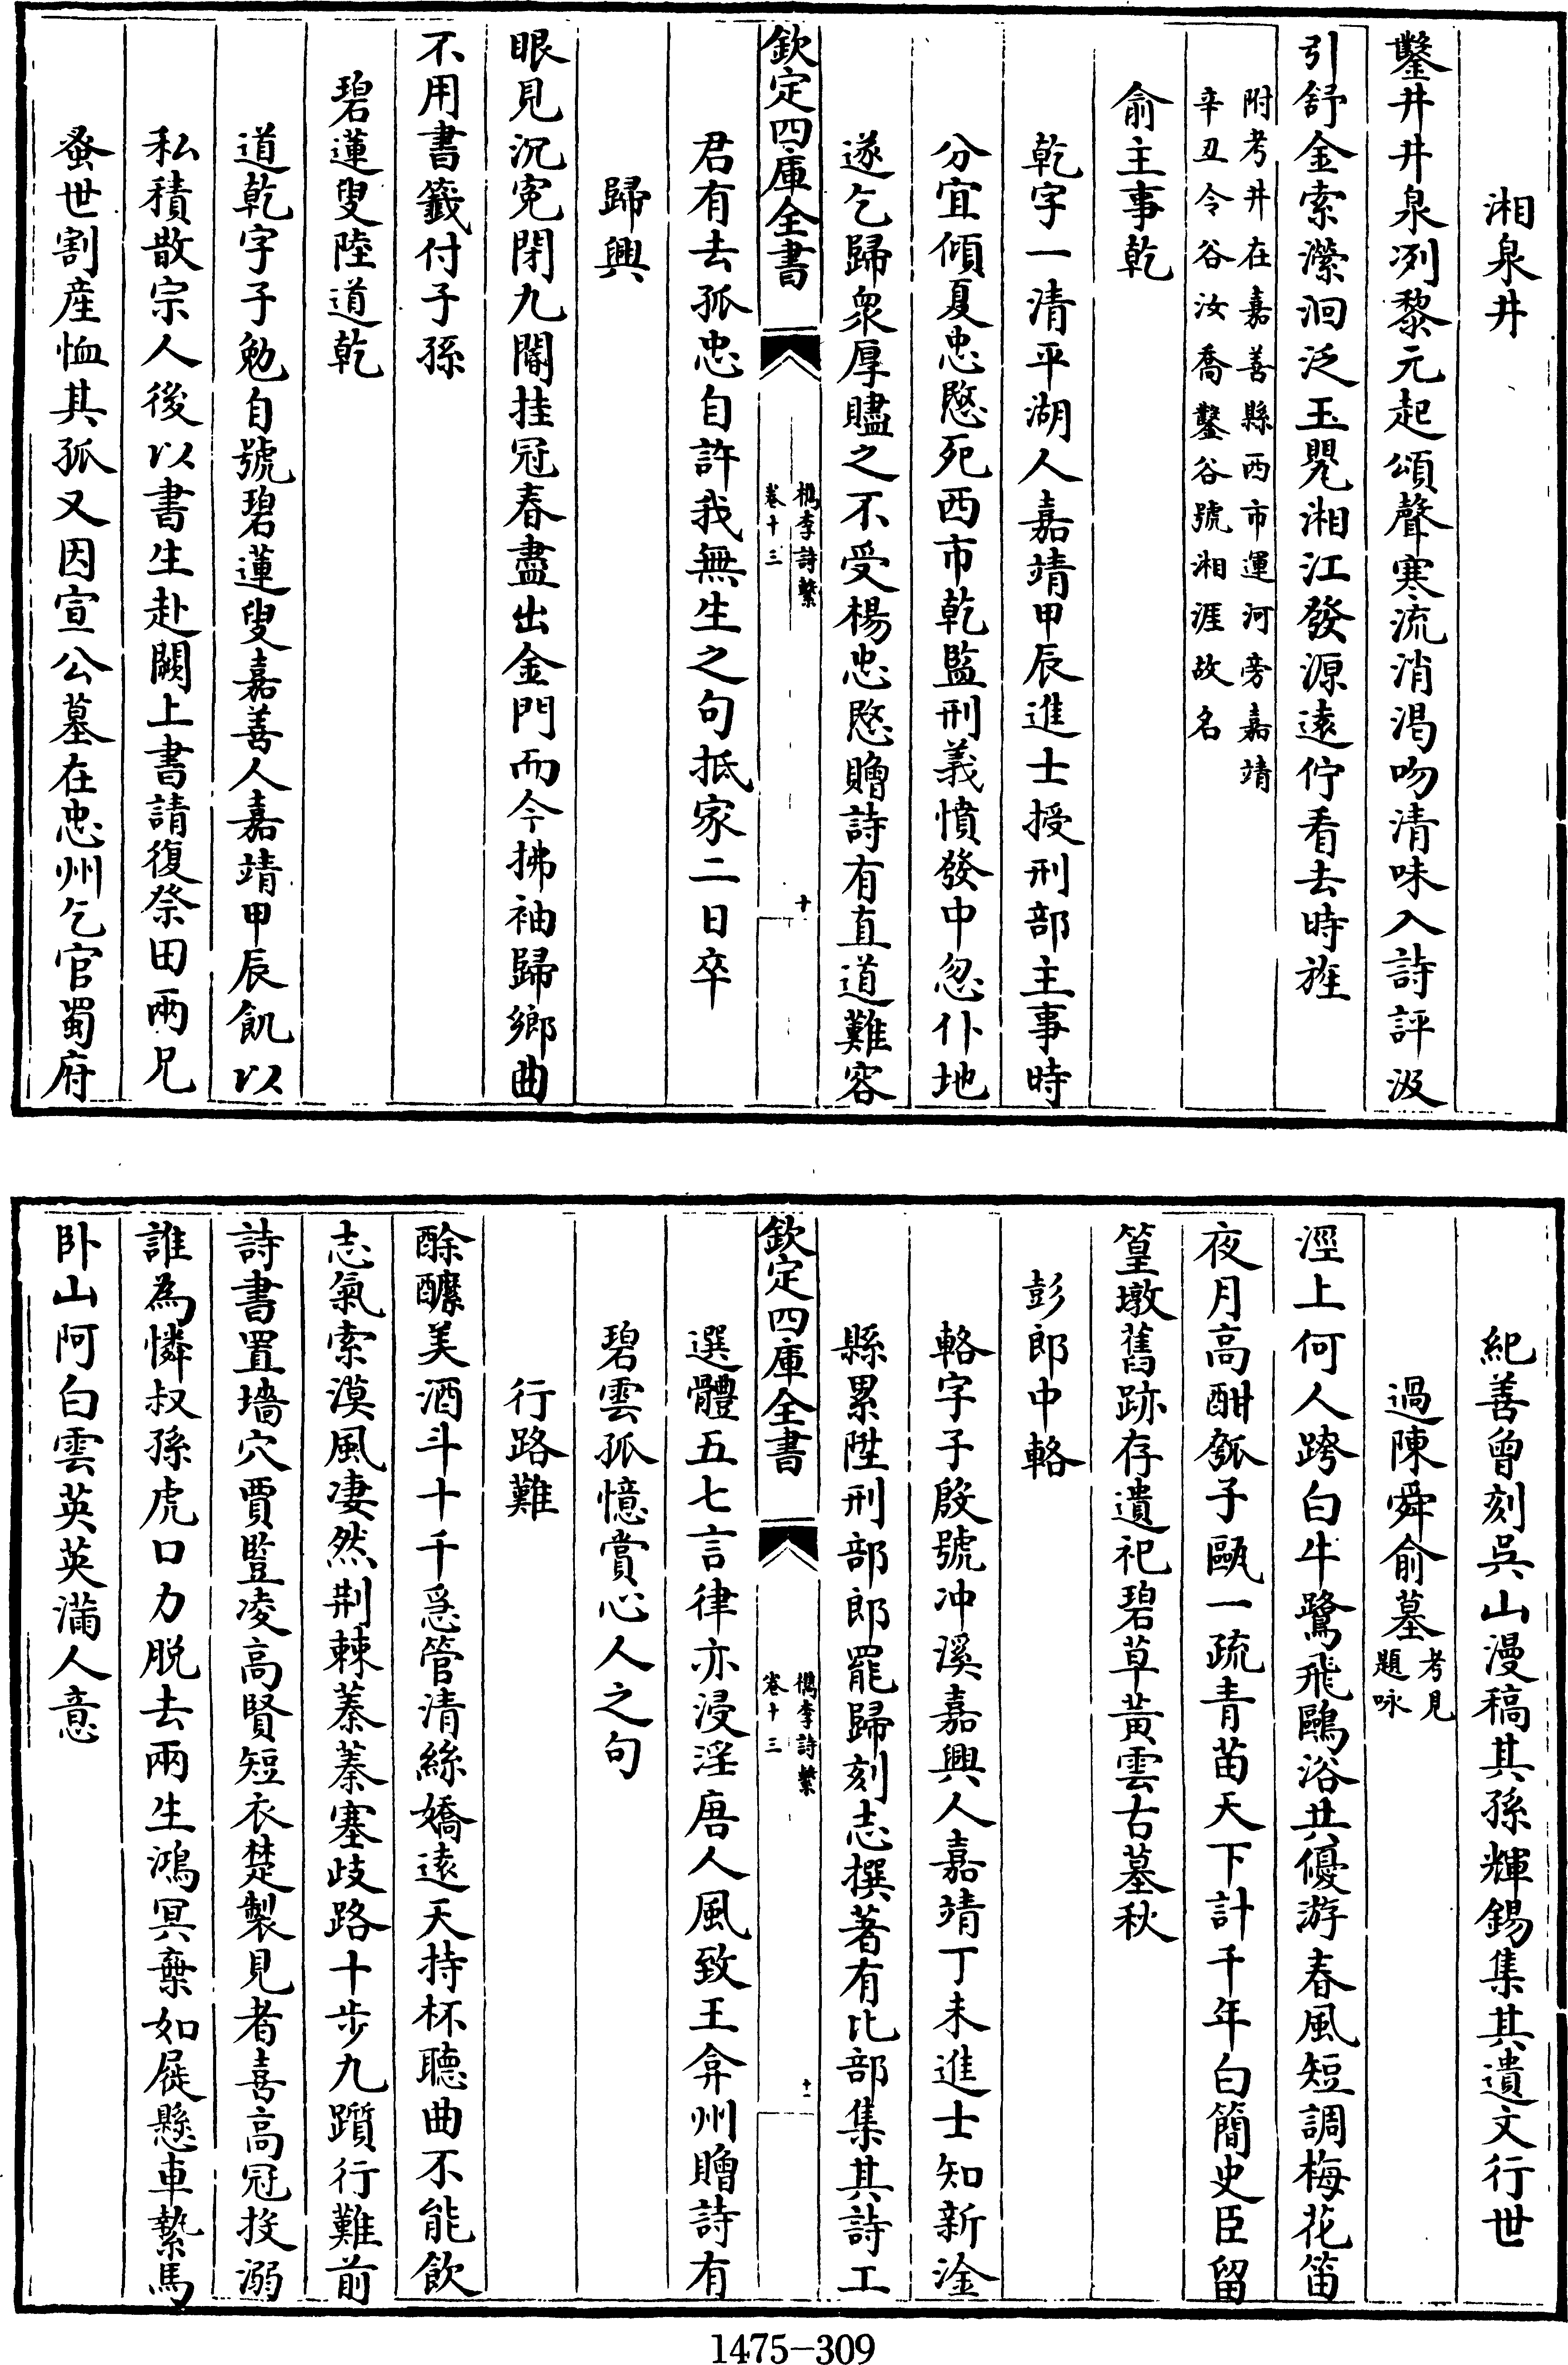 湘泉井
鑿井井泉冽黎元起頌聲寒流消渴吻清味入詩評汲
引舒金索瀠洄泛玉甖湘江發源遠佇看去時旌
附考井在嘉善縣西市運河旁嘉靖
辛丑令谷汝喬鑿谷號湘涯故名
俞主事乾
乾字一清平湖人嘉靖甲辰進士授刑部主事時
分宜傾夏忠愍死西市乾監刑義憤發中忽仆地
遂乞歸衆厚贐之不受楊忠愍贈詩有直道難容
欽定四庫全書
檇李詩繫
卷十三
十
君有去孤忠自許我無生之句抵家二日卒
歸興
眼見沉寃閉九閽挂冠春盡出金門而今拂袖歸鄉曲
不用書籤付子孫
碧蓮叟陸道乾
道乾字子勉自號碧蓮叟嘉善人嘉靖甲辰飢以
私積散宗人後以書生赴闕上書請復祭田兩兄
蚤世割産恤其孤又因宣公墓在忠州乞官蜀府
紀善曾刻吳山漫稿其孫輝錫集其遺文行世
過陳舜俞墓
考見
題咏
涇上何人跨白牛鷺飛鷗浴共優游春風短調梅花笛
夜月高酣瓠子甌一疏青苗天下計千年白簡史臣留
篁墩舊跡存遺祀碧草黃雲古墓秋
彭郎中輅
輅字子殷號冲溪嘉興人嘉靖丁未進士知新淦
縣累陞刑部郎罷歸刻志撰著有比部集其詩工
欽定四庫全書
檇李詩繫
卷十三
十一
選體五七言律亦浸淫唐人風致王弇州贈詩有
碧雲孤憶賞心人之句
行路難
酴醾美酒斗十千急管清絲嬌遠天持杯聽曲不能飲
志氣索漠風凄然荆棘蓁蓁塞歧路十步九躓行難前
詩書置墻穴賈豎凌高賢短衣楚製見者喜高冠投溺
誰為憐叔孫虎口力脫去兩生鴻冥棄如屣懸車縶馬
卧山阿白雲英英滿人意
1475-309